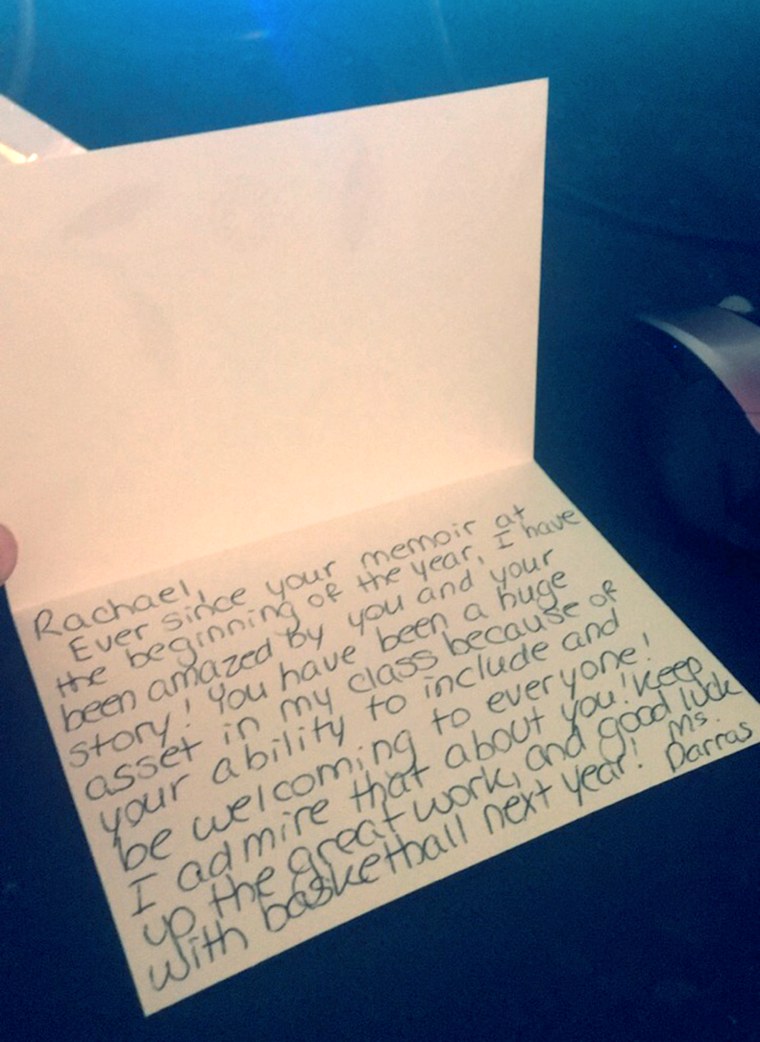 Rachael,
Ever since your memoir at
the beginning of the year, I have
been amazed by you and your
story! You have been a huge
asset in my class because of
your ability to include and
be welcoming to everyone!
I admire that about you! Keep
up the great work, and good luck
with basketball next year! Ms.
Darras